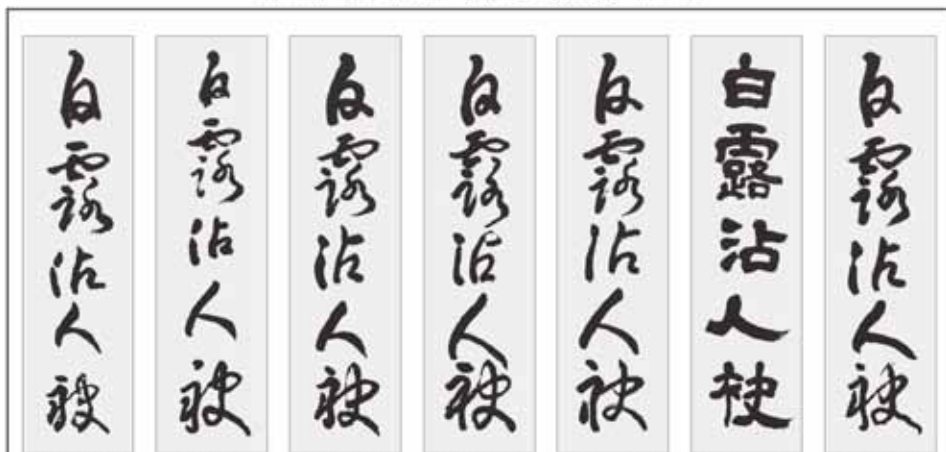 白露沾人袂
白露沾人袂
白露沾人袂
白露沾人袂
白露沾人袂
白露沾人袂
白露沾人袂